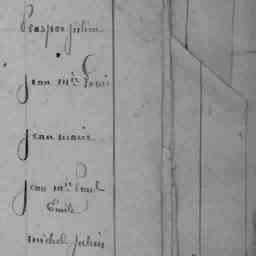 Prosper Julien
jean m.ie Louis
jean marie
jean m.ie Paul
Emile
michel Julien